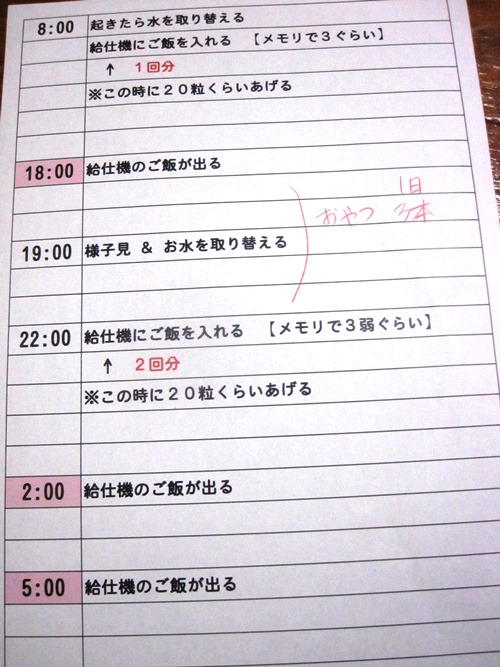 8:00 起きたら水を取り替える
給仕機にご飯を入れる 【メモリで３ぐらい】
↑ １回分
※この時に２０粒くらいあげる
18:00 給仕機のご飯が出る
1日
おやつ 3本
19:00 様子見 ＆ お水を取り替える
22:00 給仕機にご飯を入れる 【メモリで３弱ぐらい】
↑ ２回分
※この時に２０粒くらいあげる
2:00 給仕機のご飯が出る
5:00 給仕機のご飯が出る